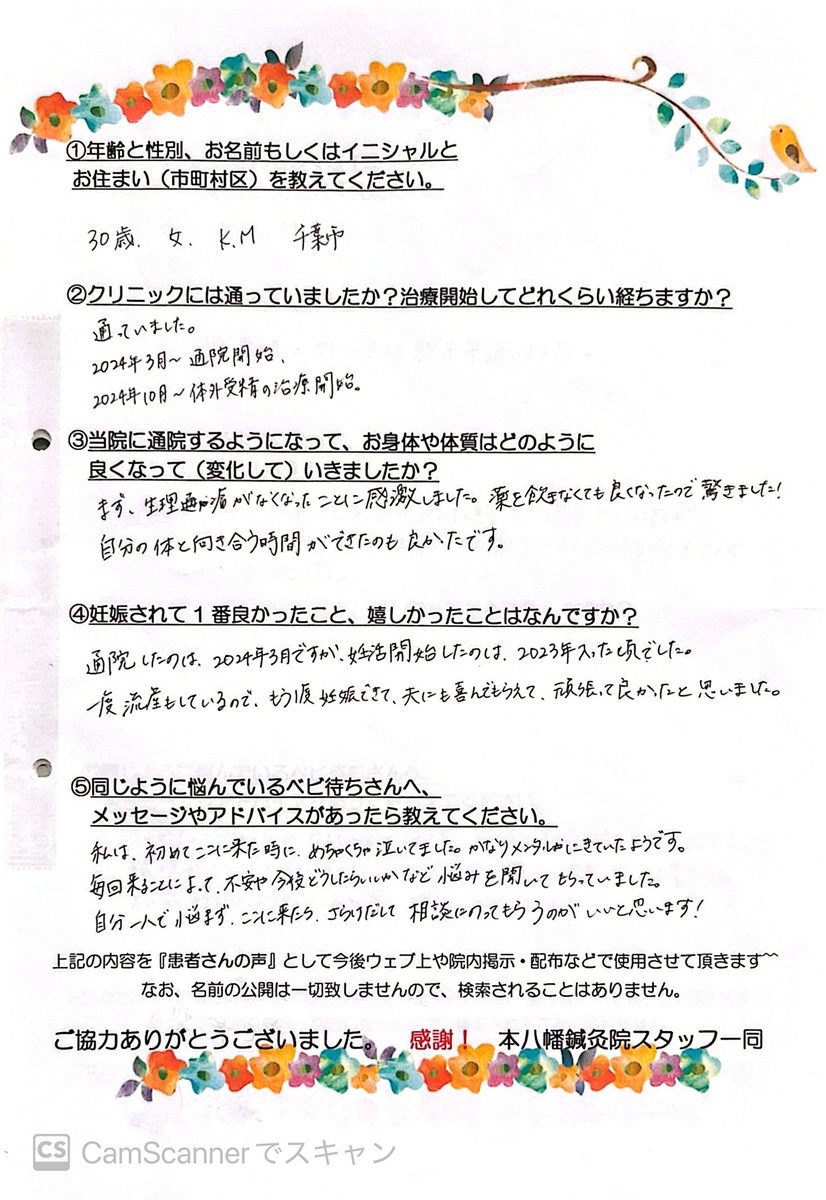 ①年齢と性別、お名前もしくはイニシャルと
お住まい（市町村区）を教えてください。
30歳. 女. K.M 千葉市
②クリニックには通っていましたか？治療開始してどれくらい経ちますか？
通っていました。
2024年3月〜通院開始、
2024年10月〜体外受精の治療開始。
③当院に通院するようになって、お身体や体質はどのように
良くなって（変化して）いきましたか？
まず、生理痛がなくなったことに感激しました。薬を飲まなくても良くなったので驚きました！
自分の体と向き合う時間ができたのも良かったです。
④妊娠されて１番良かったこと、嬉しかったことはなんですか？
通院したのは、2024年3月ですが、妊活開始したのは、2023年入った頃でした。
一度流産もしているので、もう1度妊娠できて、夫にも喜んでもらえて、頑張って良かったと思いました。
⑤同じように悩んでいるベビ待ちさんへ、
メッセージやアドバイスがあったら教えてください。
私は、初めてここに来た時に、めちゃくちゃ泣いてました。かなりメンタルがにきていたようです。
毎回来ることによって、不安や今後どうしたらいいかなど悩みを聞いてもらっていました。
自分一人で悩まず、ここに来たら、さらけだして相談にのってもらうのがいいと思います！
上記の内容を『患者さんの声』として今後ウェブ上や院内掲示・配布などで使用させて頂きます^^
なお、名前の公開は一切致しませんので、検索されることはありません。
ご協力ありがとうございました。 感謝！ 本八幡鍼灸院スタッフ一同
CS CamScannerでスキャン